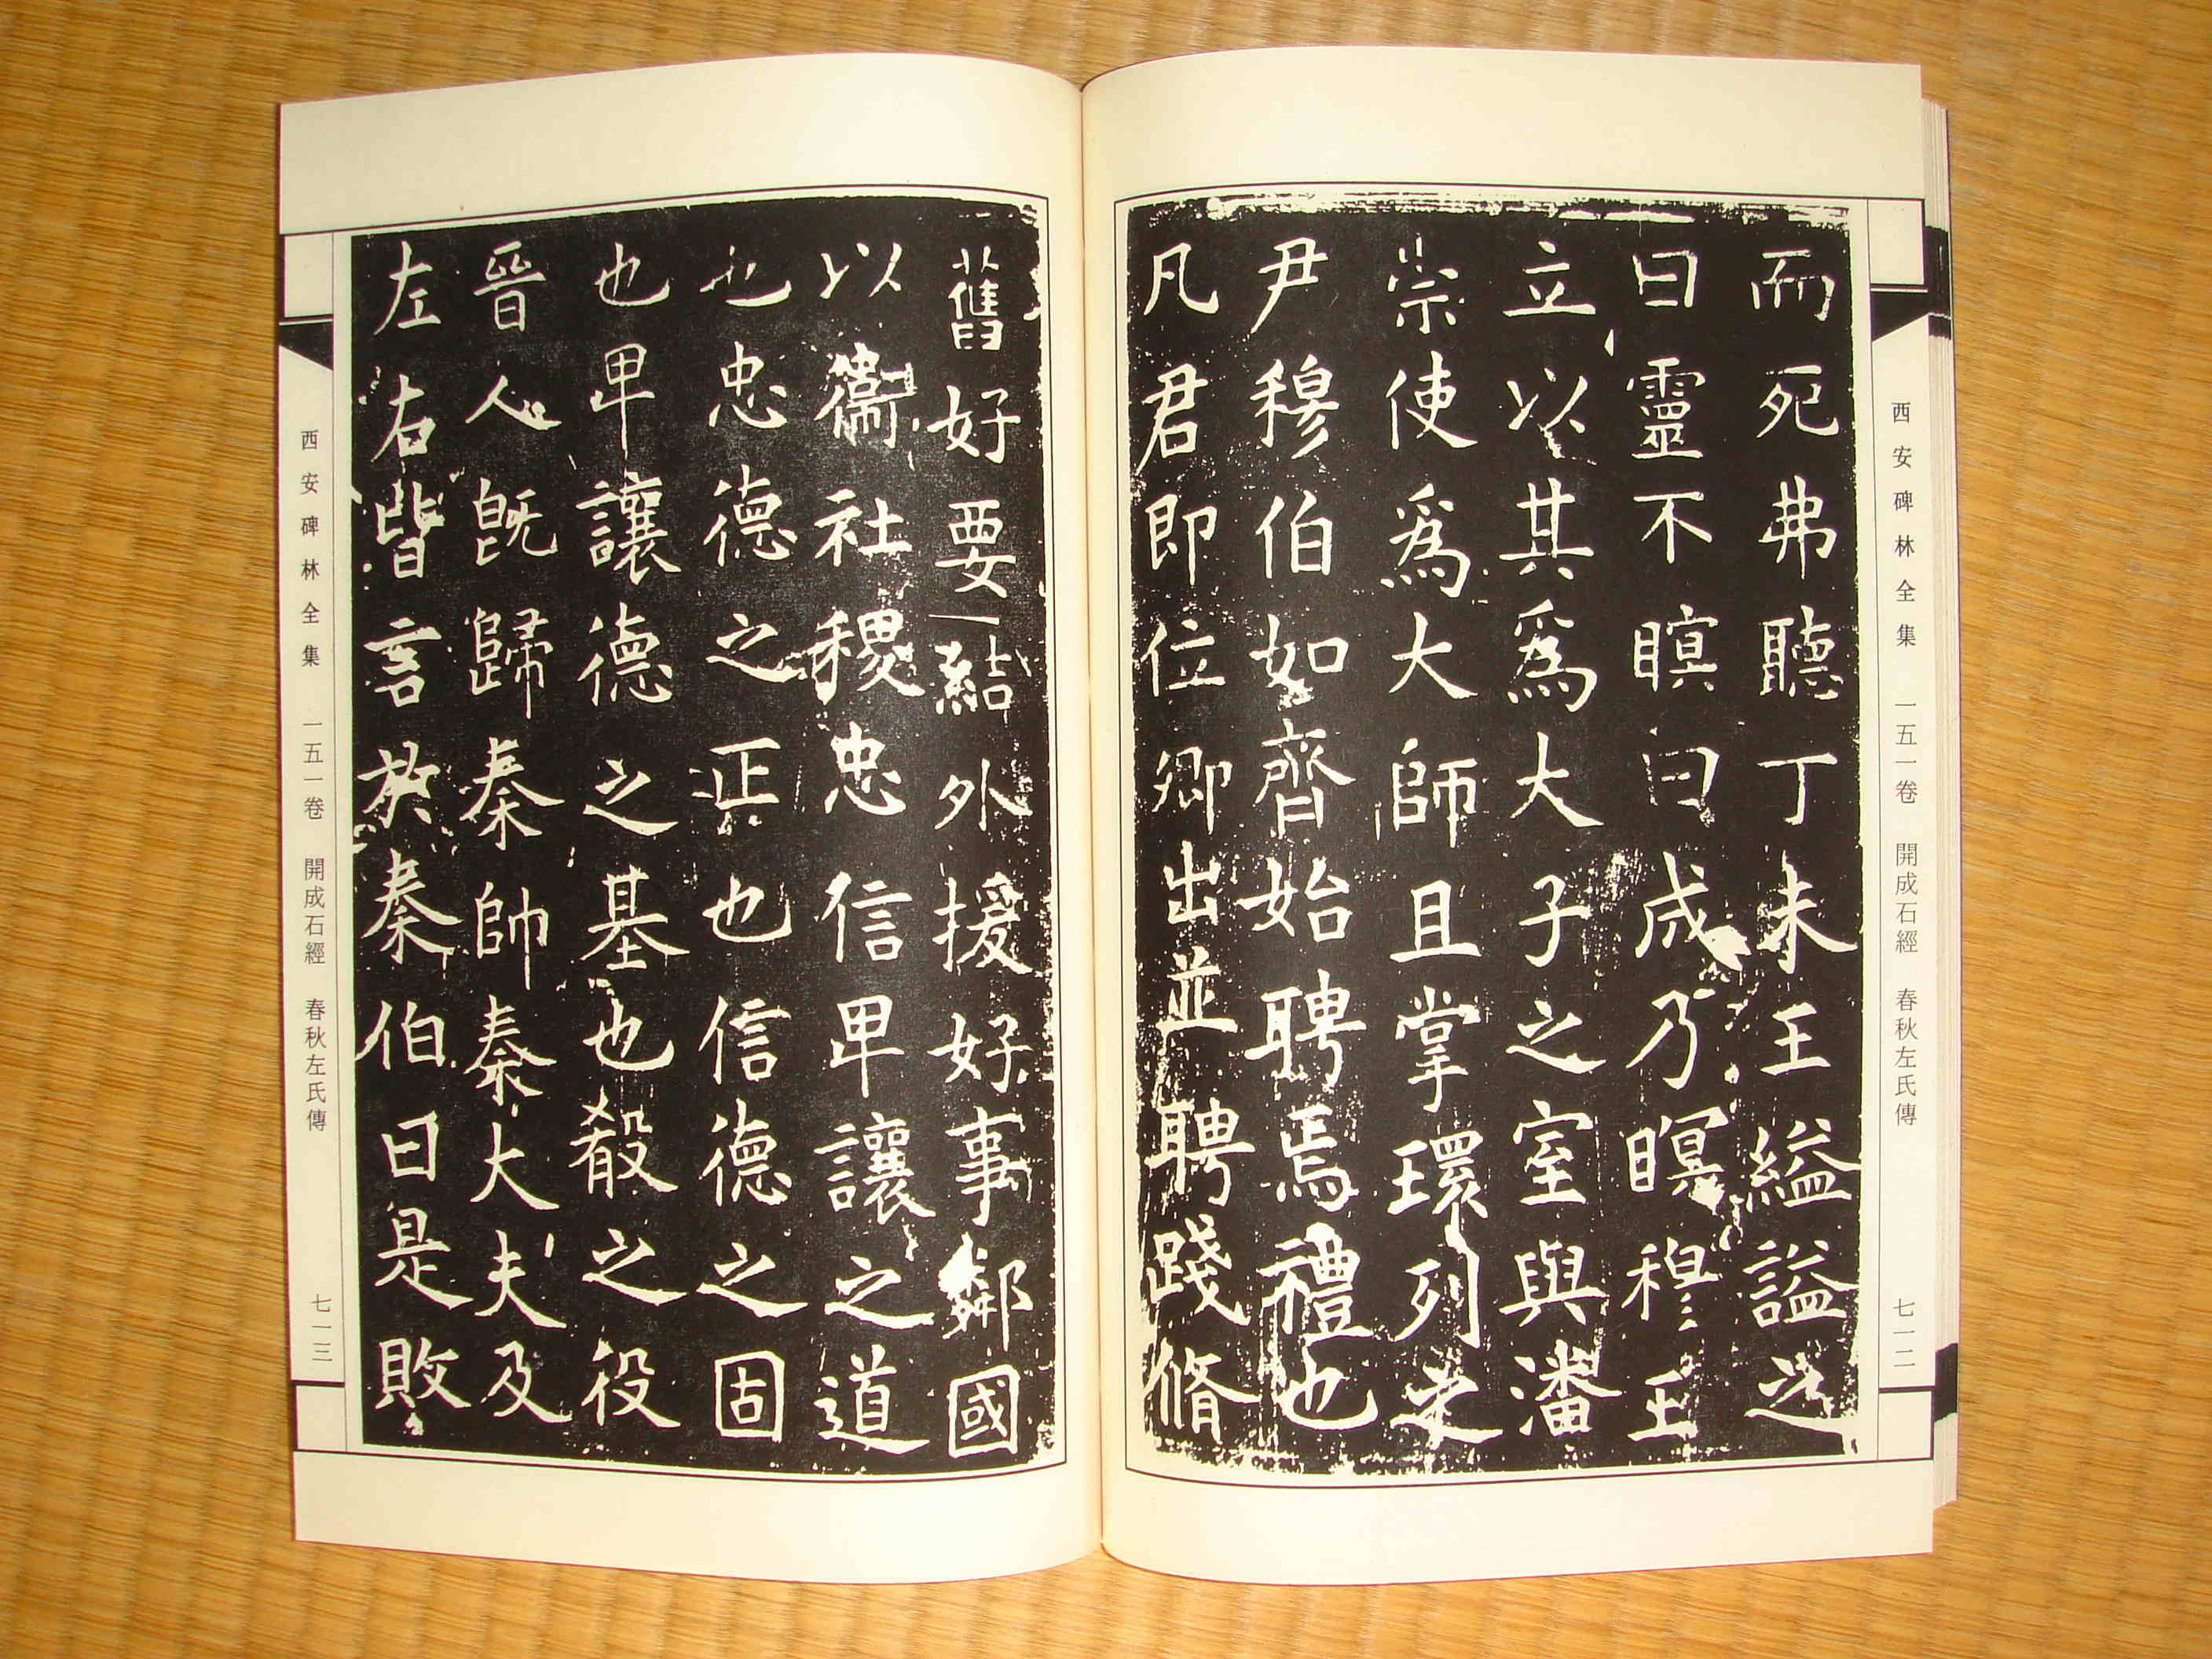 西安碑林全集 一五一卷 開成石經 春秋左氏傳 七一二
而死弗聽丁未王縊謚之
曰靈不瞑曰成乃瞑穆王
立以其爲大子之室與潘
崇使爲大師且掌環列之
尹穆伯如齊始聘焉禮也
凡君即位卿出並聘踐脩
舊好要結外援好事鄰國
以衞社稷忠信卑讓之道
也忠德之正也信德之固
也卑讓德之基也殽之役
晉人既歸秦帥秦大夫及
左右皆言於秦伯曰是敗
西安碑林全集 一五一卷 開成石經 春秋左氏傳 七一三